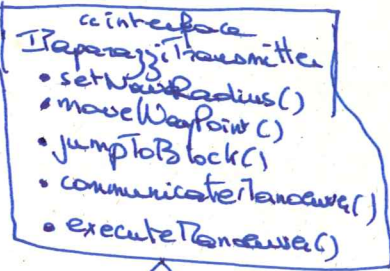 <<interface
IPaparazziTransmitter
• setNavRadius()
• moveWayPoint()
• jumpToBlock()
• communicateManoeuvre()
• executeManoeuvre()